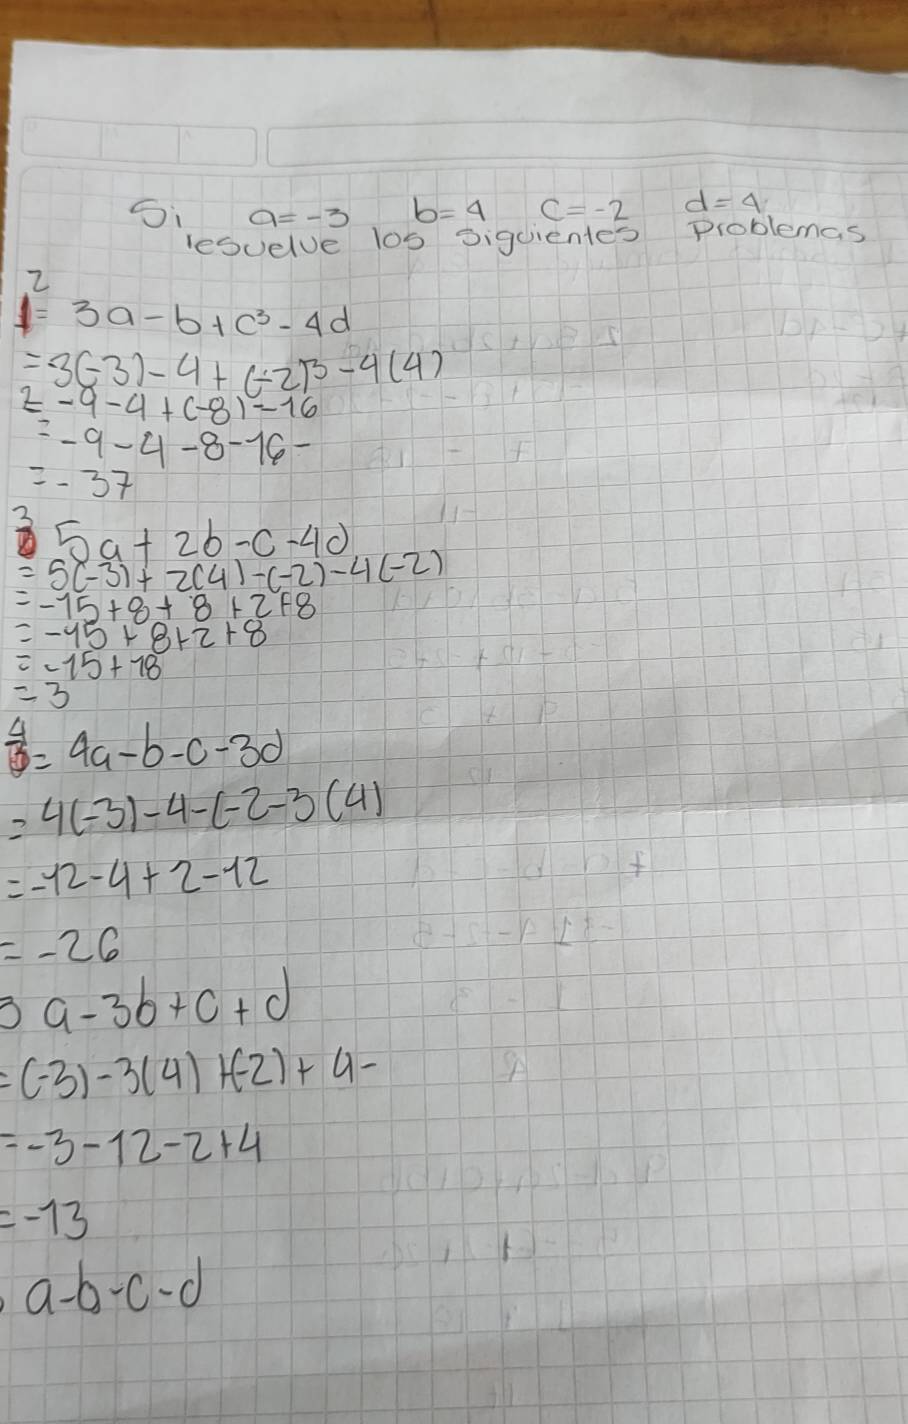 Si a=-3 b=4 c=-2 d=4
resuelve los siguientes problemas
2
1= 3a-b+c³-4d
=3(-3)-4+(-2)³-4(4)
= -9-4+(-8)-16
=-9-4-8-16-
=-37
3
5a+2b-c-4d
=5(-3)+2(4)-(-2)-4(-2)
=-15+8+8+2+8
=-15+8+2+8
=-15+18
=3
4
= 4a-b-c-3d
=4(-3)-4-(-2-3(4)
=-12-4+2-12
=-26
a-3b+c+d
=(-3)-3(4)+(-2)+4-
=-3-12-2+4
=-13
a-b-c-d